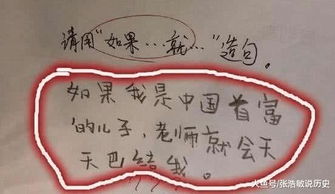 请用"如果…就…"造句。
如果我是中国首富
的儿子，老师就会天
天巴结我。
火号/张浩敏说历史